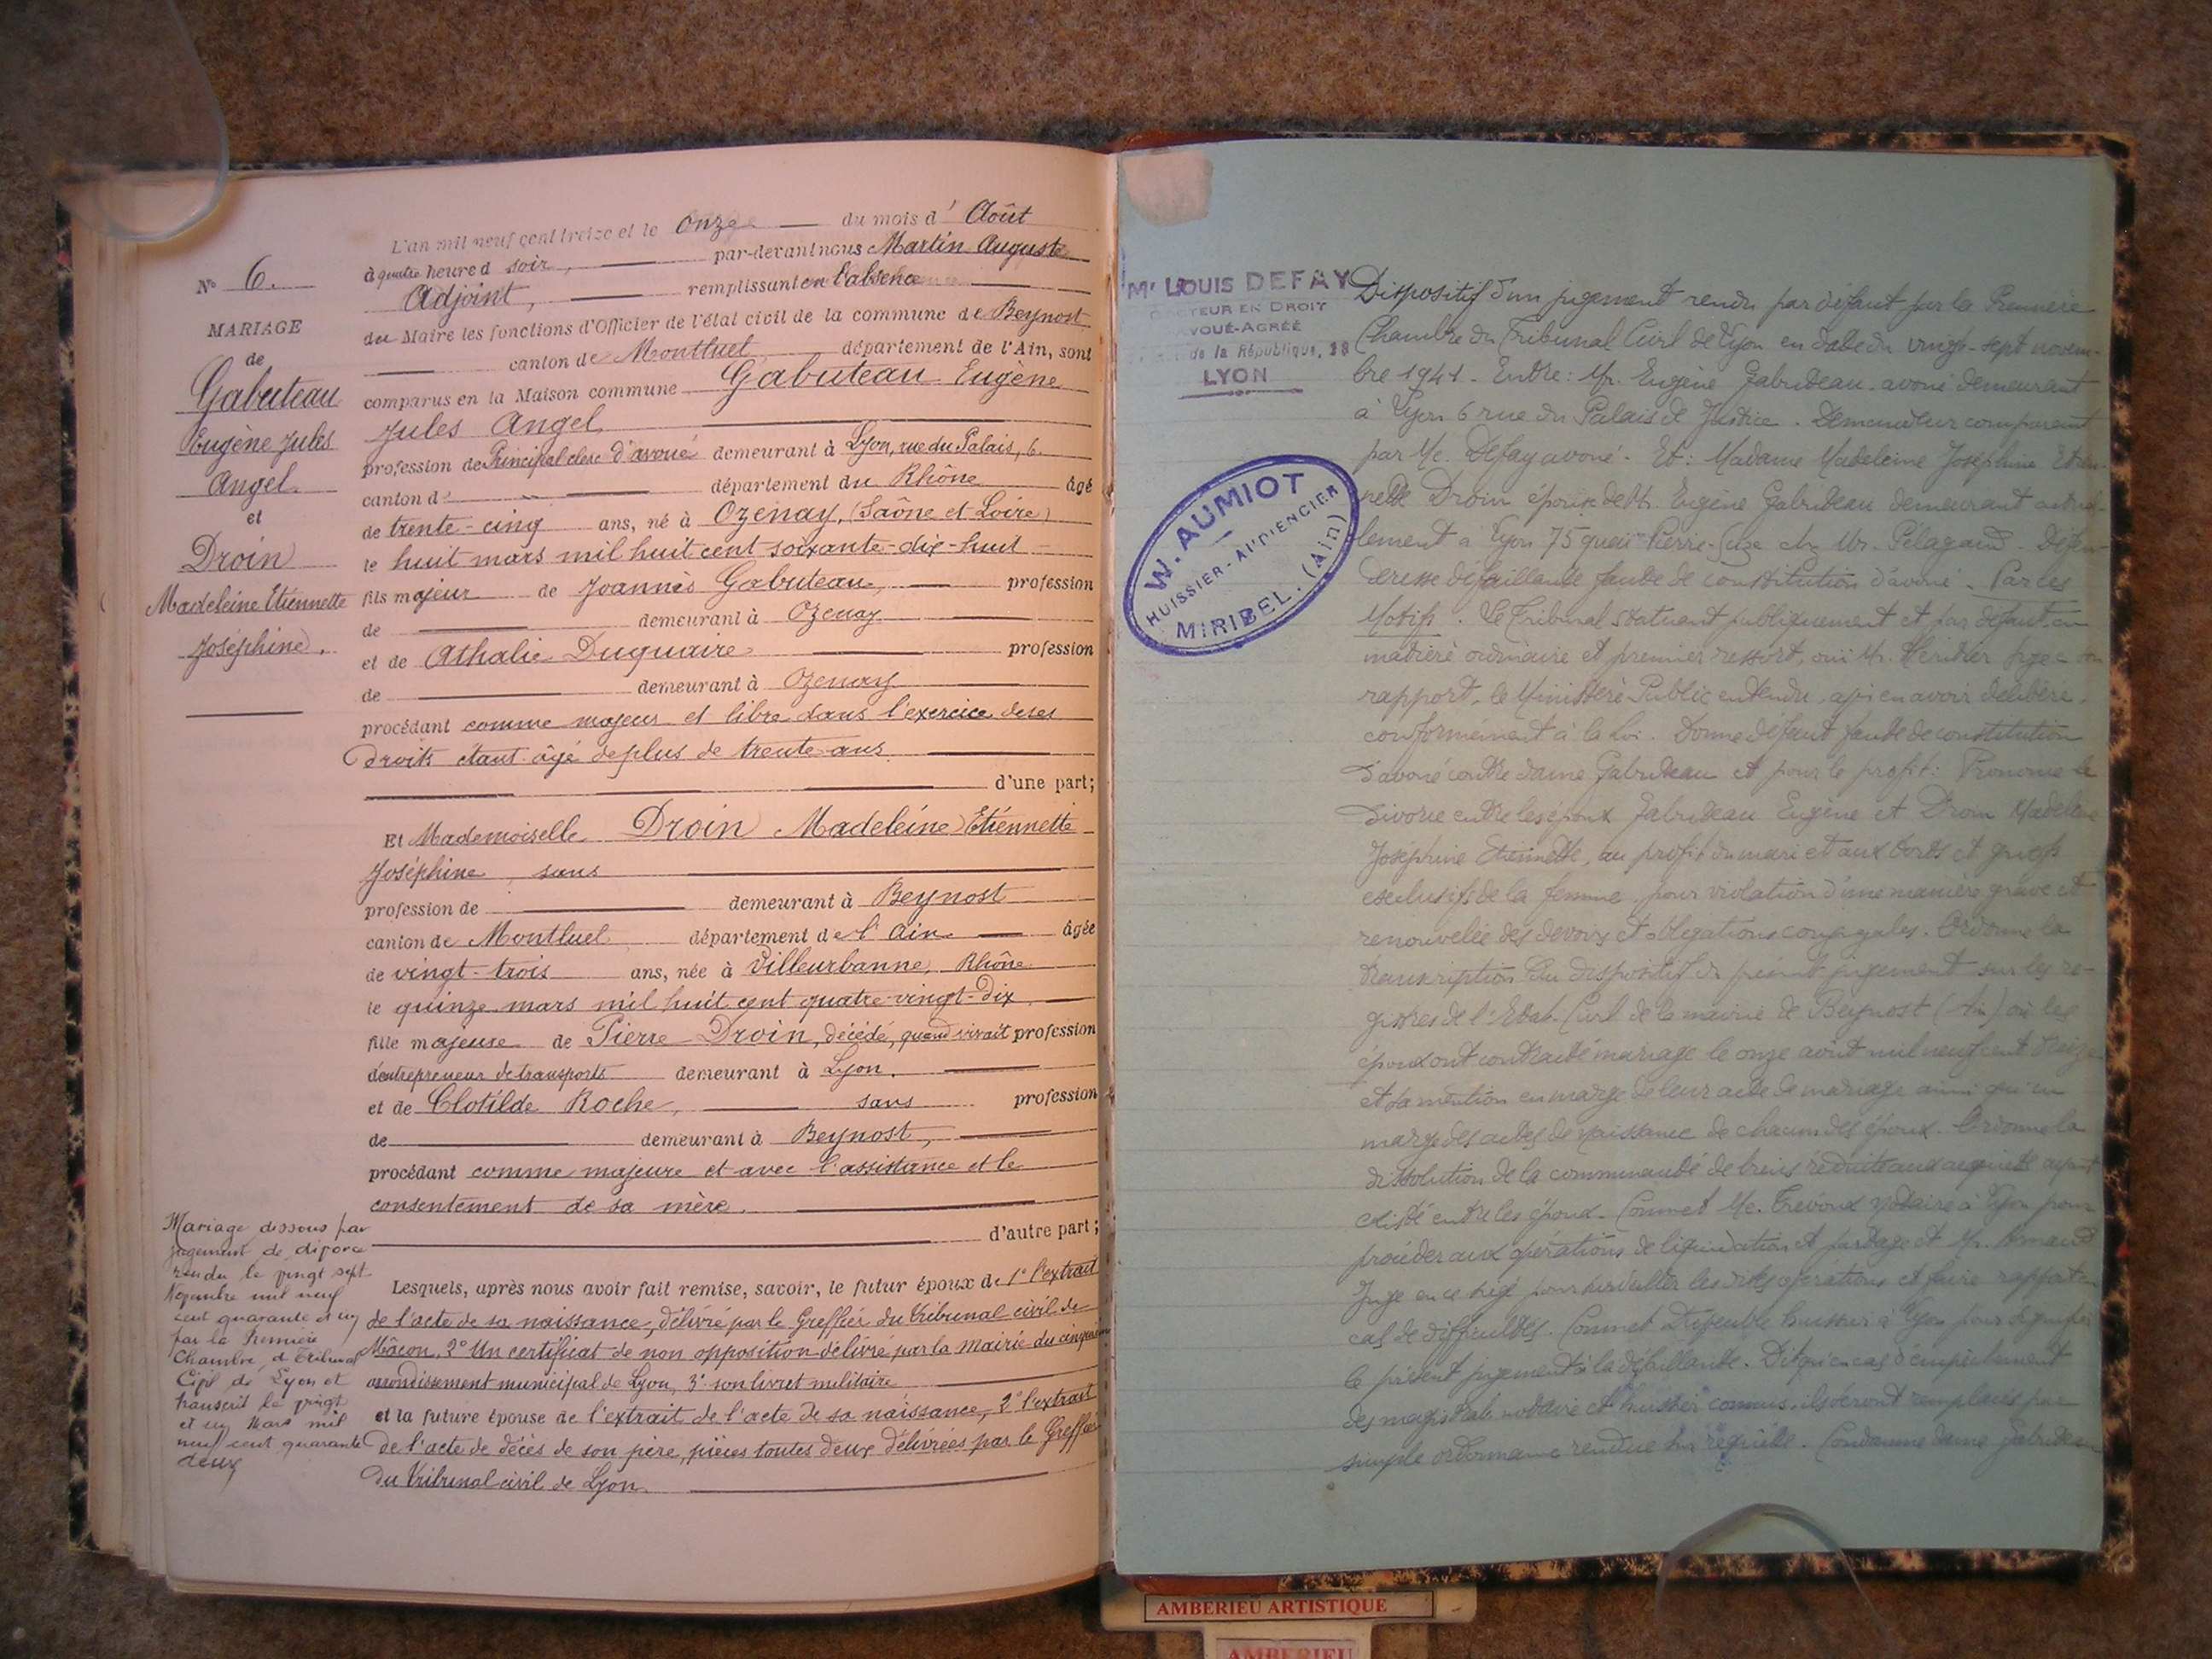 L'an mil neuf cent treize et le Onze du mois d' Août
à quatre heures d soir, par-devant nous Martin Auguste
Adjoint, remplissant en l'absence
du Maire les fonctions d'Officier de l'état civil de la commune de Beynost
canton de Montluel département de l'Ain, sont
comparus en la Maison commune Gabuteau Eugène
Jules Angel
profession de Principal clerc d'avoué demeurant à Lyon, rue du Palais, 6.
canton d département du Rhône âgé
de trente-cinq ans, né à Ozenay, (Saône et Loire)
le huit mars mil huit cent soixante-dix-huit
fils majeur de Joannès Gabuteau, profession
de demeurant à Ozenay
et de Athalie Duquaire profession
de demeurant à Ozenay
procédant comme majeur et libre dans l'exercice de ses
Droits étant âgé de plus de trente ans
d'une part;
Et Mademoiselle Droin Madeleine Etiennette
Joséphine, sans
profession de demeurant à Beynost
canton de Montluel département de l'Ain âgée
de vingt-trois ans, née à Villeurbanne, Rhône
le quinze mars mil huit cent quatre-vingt-dix
fille majeure de Pierre Droin, décédé, quand vivait profession
d'entrepreneur de transports demeurant à Lyon.
et de Clotilde Roche, sans profession
de demeurant à Beynost,
procédant comme majeure et avec l'assistance et le
consentement de sa mère.
d'autre part;
Lesquels, après nous avoir fait remise, savoir, le futur époux de 1° l'extrait
de l'acte de sa naissance, délivré par le Greffier du Tribunal civil de
Mâcon, 2° Un certificat de non opposition délivré par la Mairie du cinquième
arrondissement municipal de Lyon, 3° son livret militaire
et la future épouse de l'extrait de l'acte de sa naissance, 2° l'extrait
de l'acte de décès de son père, pièces toutes deux délivrées par le Greffier
du Tribunal civil de Lyon.
N° 6.
MARIAGE
de
Gabuteau
Eugène Jules
Angel
et
Droin
Madeleine Etiennette
Joséphine.
Mariage dissous par
jugement de divorce
rendu le vingt sept
Novembre mil neuf
cent quarante et un
par la Première
Chambre du Tribunal
Civil de Lyon et
transcrit le vingt
et un Mars mil
neuf cent quarante
deux
Me LOUIS DEFAY
DOCTEUR EN DROIT
AVOUÉ-AGRÉÉ
de la République, 38
LYON
W. AUMIOT
HUISSIER-AUDIENCIER
MIRIBEL. (Ain)
Dispositif d'un jugement rendu par défaut par la Première
Chambre du Tribunal Civil de Lyon en date du vingt-sept novem-
bre 1941. Entre: Mr. Eugène Gabuteau avoué demeurant
à Lyon 6 rue du Palais de Justice. Demandeur comparant
par Me. Defay avoué. Et: Madame Madeleine Joséphine Etien-
nette Droin épouse de Mr. Eugène Gabuteau demeurant actuel-
lement à Lyon 75 quai Pierre-Scize chez Mr. Pélagaud Défen-
deresse défaillante faute de constitution d'avoué. Par ces
Motifs. Le Tribunal statuant publiquement et par défaut en
matière ordinaire et premier ressort, ouï Mr. juge en son
rapport, le Ministère Public entendu, après en avoir délibéré,
conformément à la loi. Donne défaut faute de constitution
d'avoué contre dame Gabuteau et pour le profit: Prononce le
divorce entre les époux Gabuteau Eugène et Droin Madeleine
Joséphine Etiennette, au profit du mari et aux torts et griefs
exclusifs de la femme pour violation d'une manière grave et
renouvelée des devoirs et obligations conjugales. Ordonne la
transcription du dispositif du présent jugement sur les re-
gistres de l'Etat Civil de la mairie de Beynost (Ain) où les
époux ont contracté mariage le onze août mil neuf cent treize
et sa mention en marge de leur acte de mariage ainsi qu'en
marge des actes de naissance de chacun des époux. Ordonne la
dissolution de la communauté de biens réduite aux acquêts ayant
existé entre les époux. Commet Me. Trévoux notaire à Lyon pour
procéder aux opérations de liquidation et partage et Mr.
Juge en ce siège pour surveiller les dites opérations et faire rapport en
cas de difficultés. Commet huissier à Lyon pour signifier
le présent jugement à la défaillante. Dit qu'en cas d'empêchement
des magistrat, notaire et huissier commis, ils seront remplacés par
simple ordonnance rendue sur requête. Condamne dame Gabuteau
AMBERIEU ARTISTIQUE
AMBERIEU